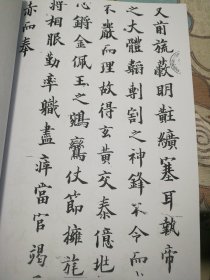 又前旒蔽明黈纊塞耳執帝
之大體韜剸割之神鋒不令而
不嚴而理故得玄黄交泰億兆
心鏘金佩玉之鵷鸞仗節擁旄
将相服勤率職盡瘁當官竭
而奉